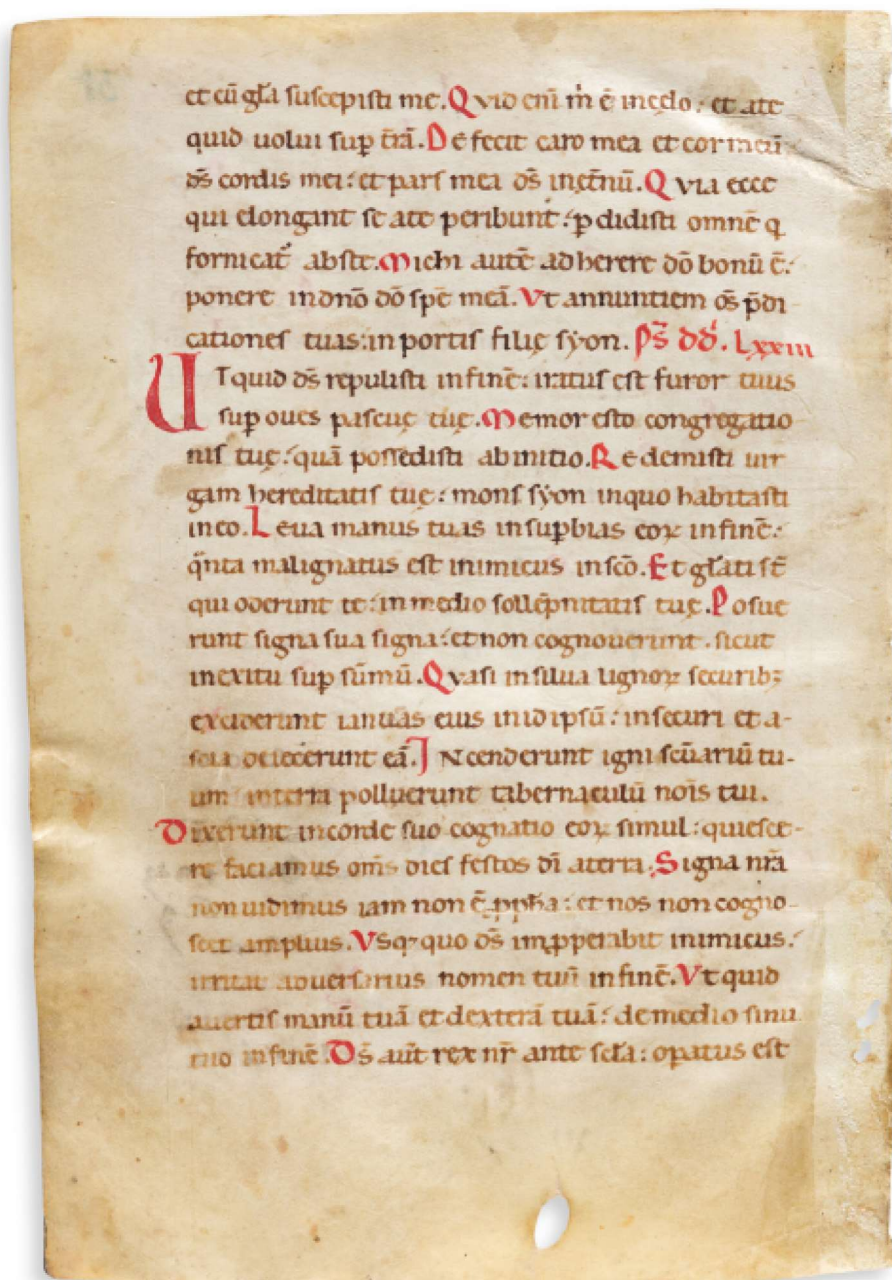 et cū gl̄a suscepisti me. Qvid eni᷑ m̄ ē incęlo : et ate
quid uolui sup̄ t̄rā. Defecit caro mea et cor meū
ds̄ cordis mei : et pars mea ds̄ inęt̄nū. Qvia ecce
qui elongant se ate peribunt : p̄didisti omnē q̄
fornicat᷑ abste. Michi autē adherere dō bonū ē :
ponere indnō dō spē meā. Vt annuntiem os̄ p̄di
cationes tuas : in portis filię syon. Ps̄ dd̄. Lxxiii
UT quid ds̄ repulisti infinē : iratus est furor tuus
sup̄ oues pascuę tuę. Memor esto congregatio
nis tuę : quā possedisti abinitio. Redemisti uir
gam hereditatis tuę : mons syon inquo habitasti
ineo. Leua manus tuas insup̄bias eoꝝ infinē :
q̄nta malignatus est inimicus inscō. Et gl̄ati st̄
qui oderunt te : inmedio sollēpnitatis tuę. Posue
runt signa sua signa : et non cognouerunt. sicut
inexitu sup̄ sūmū. Qvasi insilua lignoꝝ securibꝫ
exciderunt ianuas eius inidipsū : insecuri et a-
scia deiecerunt eā. INcenderunt igni scūariū tu-
um interra polluerunt tabernaculū nōis tui.
Dixerunt incorde suo cognatio eoꝝ simul : quiesce-
re faciamus om̄s dies festos dī aterra. Signa nr̄a
non uidimus iam non ē pph̄a : et nos non cogno-
scet amplius. Vsqꝫ quo ds̄ imp̄perabit inimicus :
irritat aduersarius nomen tuū infinē. Vt quid
auertis manū tuā et dexterā tuā : de medio sinu
tuo infinē. Ds̄ aūt rex nr̄ ante scl̄a : opatus est